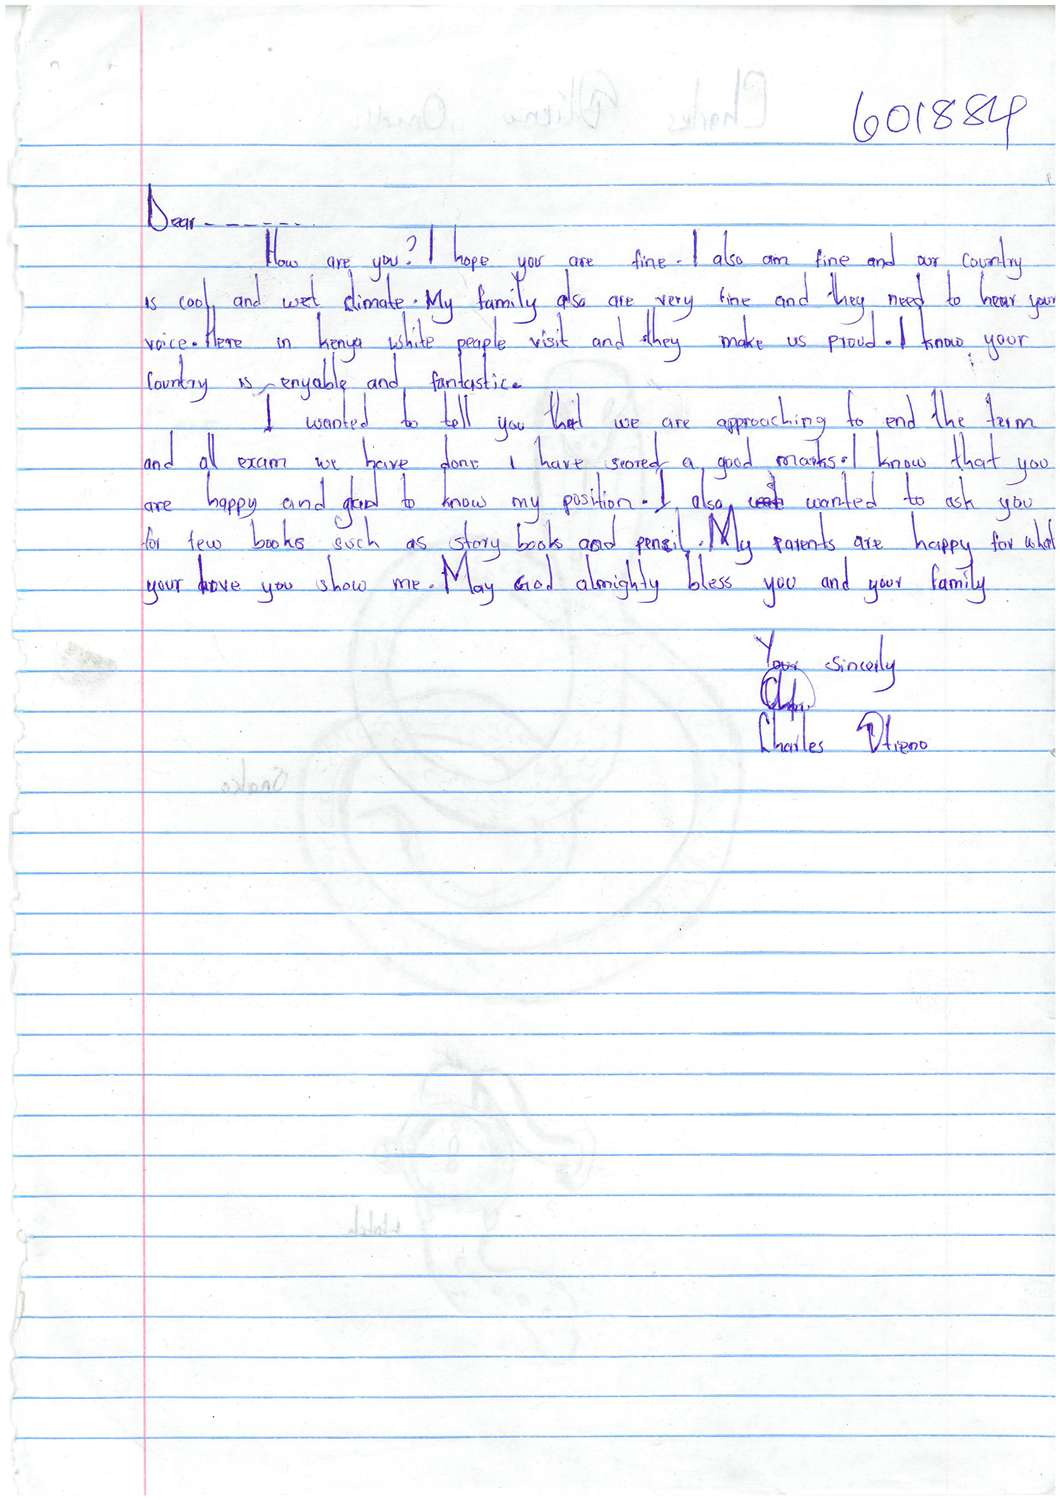 601884
Dear - - - - - -
How are you? I hope you are fine. I also am fine and our Country
is cool and wet climate. My family also are very fine and they need to hear your
voice. Here in kenya white people visit and they make us proud. I know your
Country is enyable and fantastic.
I wanted to tell you that we are approaching to end the term
and all exam we have done I have scored a good marks. I know that you
are happy and glad to know my position. I also wanted to ask you
for few books such as story books and pensil. My parents are happy for what
your love you show me. May God almighty bless you and your family
Your Sincerly
Charles Otieno
Snake